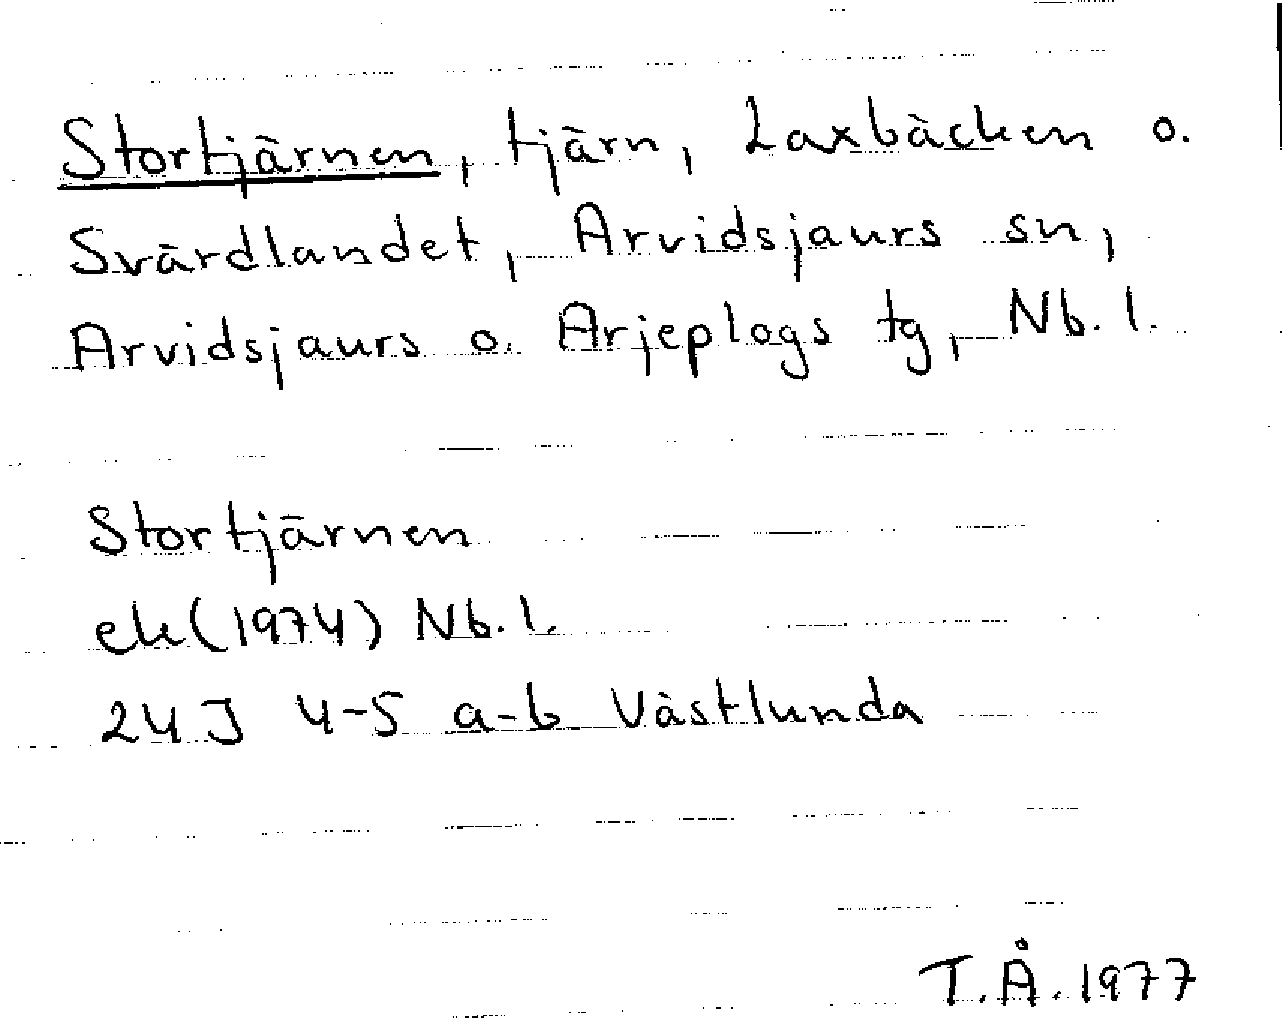 Stortjärnen, tjärn, Laxbäcken o.
Svärdlandet, Arvidsjaurs sn,
Arvidsjaurs o. Arjeplogs tg, Nb. l.
Stortjärnen
ek (1974) Nb. l.
24J 4-5 a-b Västlunda
T.Å. 1977